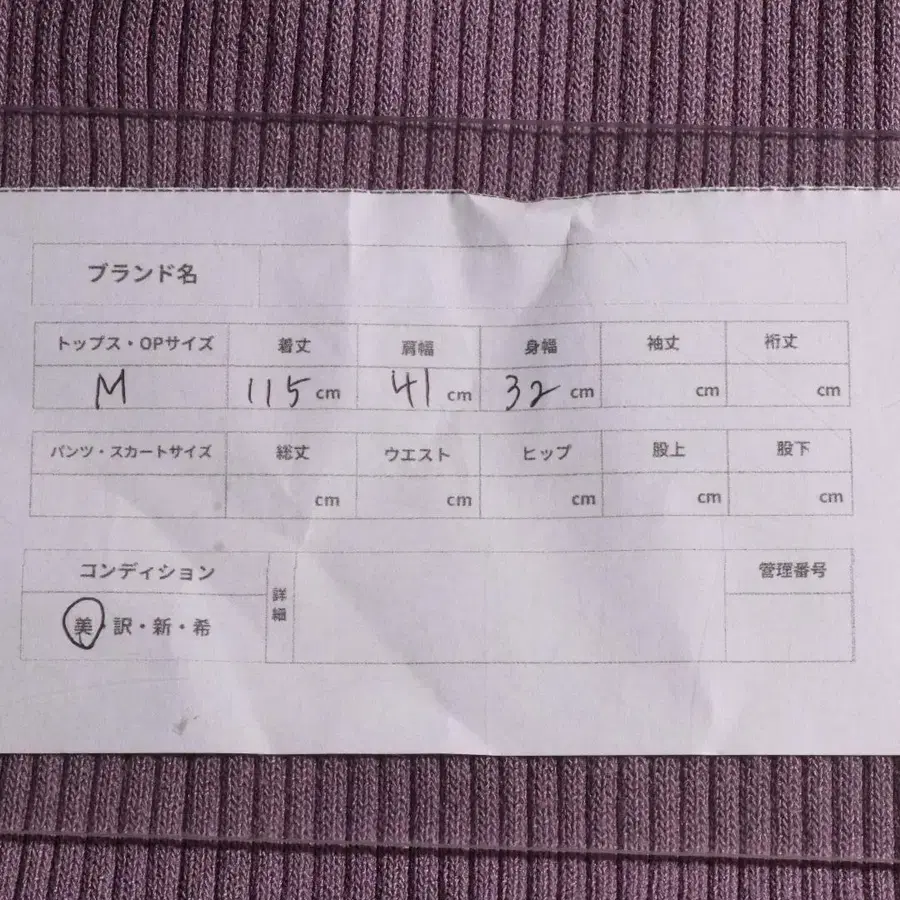 ブランド名
トップス・OPサイズ 着丈 肩幅 身幅 袖丈 裄丈
M 115 cm 41 cm 32 cm cm cm
パンツ・スカートサイズ 総丈 ウエスト ヒップ 股上 股下
cm cm cm cm cm
コンディション 詳細 管理番号
美・訳・新・希